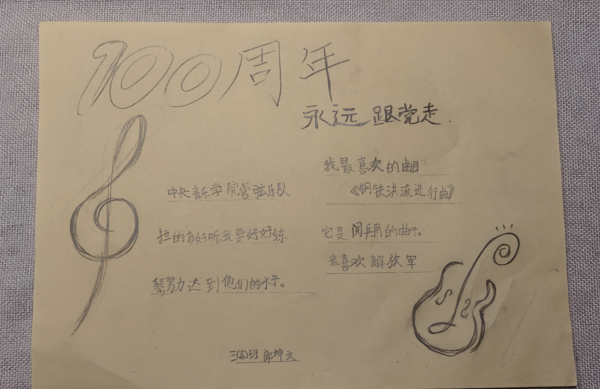 100周年
永远跟党走
中央音乐学院管弦乐队
拉的真好听我要好好练
努力达到他们的水平。
我最喜欢的曲目
《钢铁洪流进行曲》
它是阅兵用的曲子。
我喜欢解放军
三(4)班